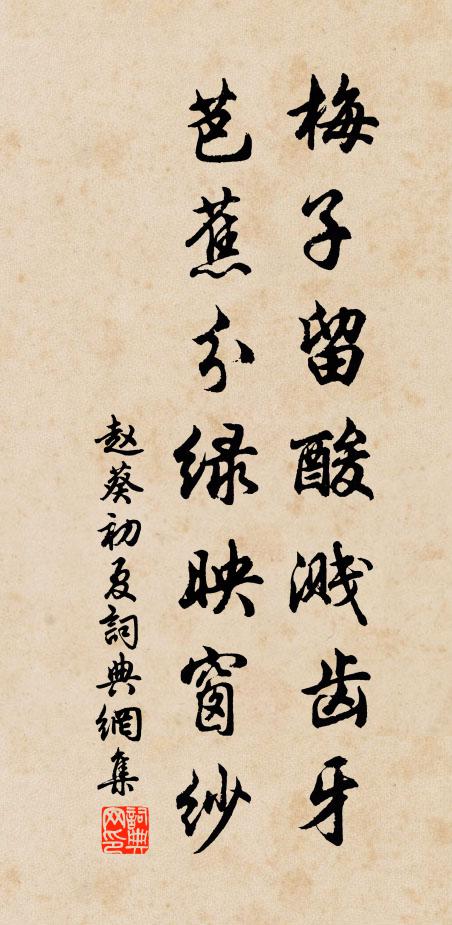 梅子留酸溅齿牙
芭蕉分绿映窗纱
赵葵初夏詞典網集
詞典网印